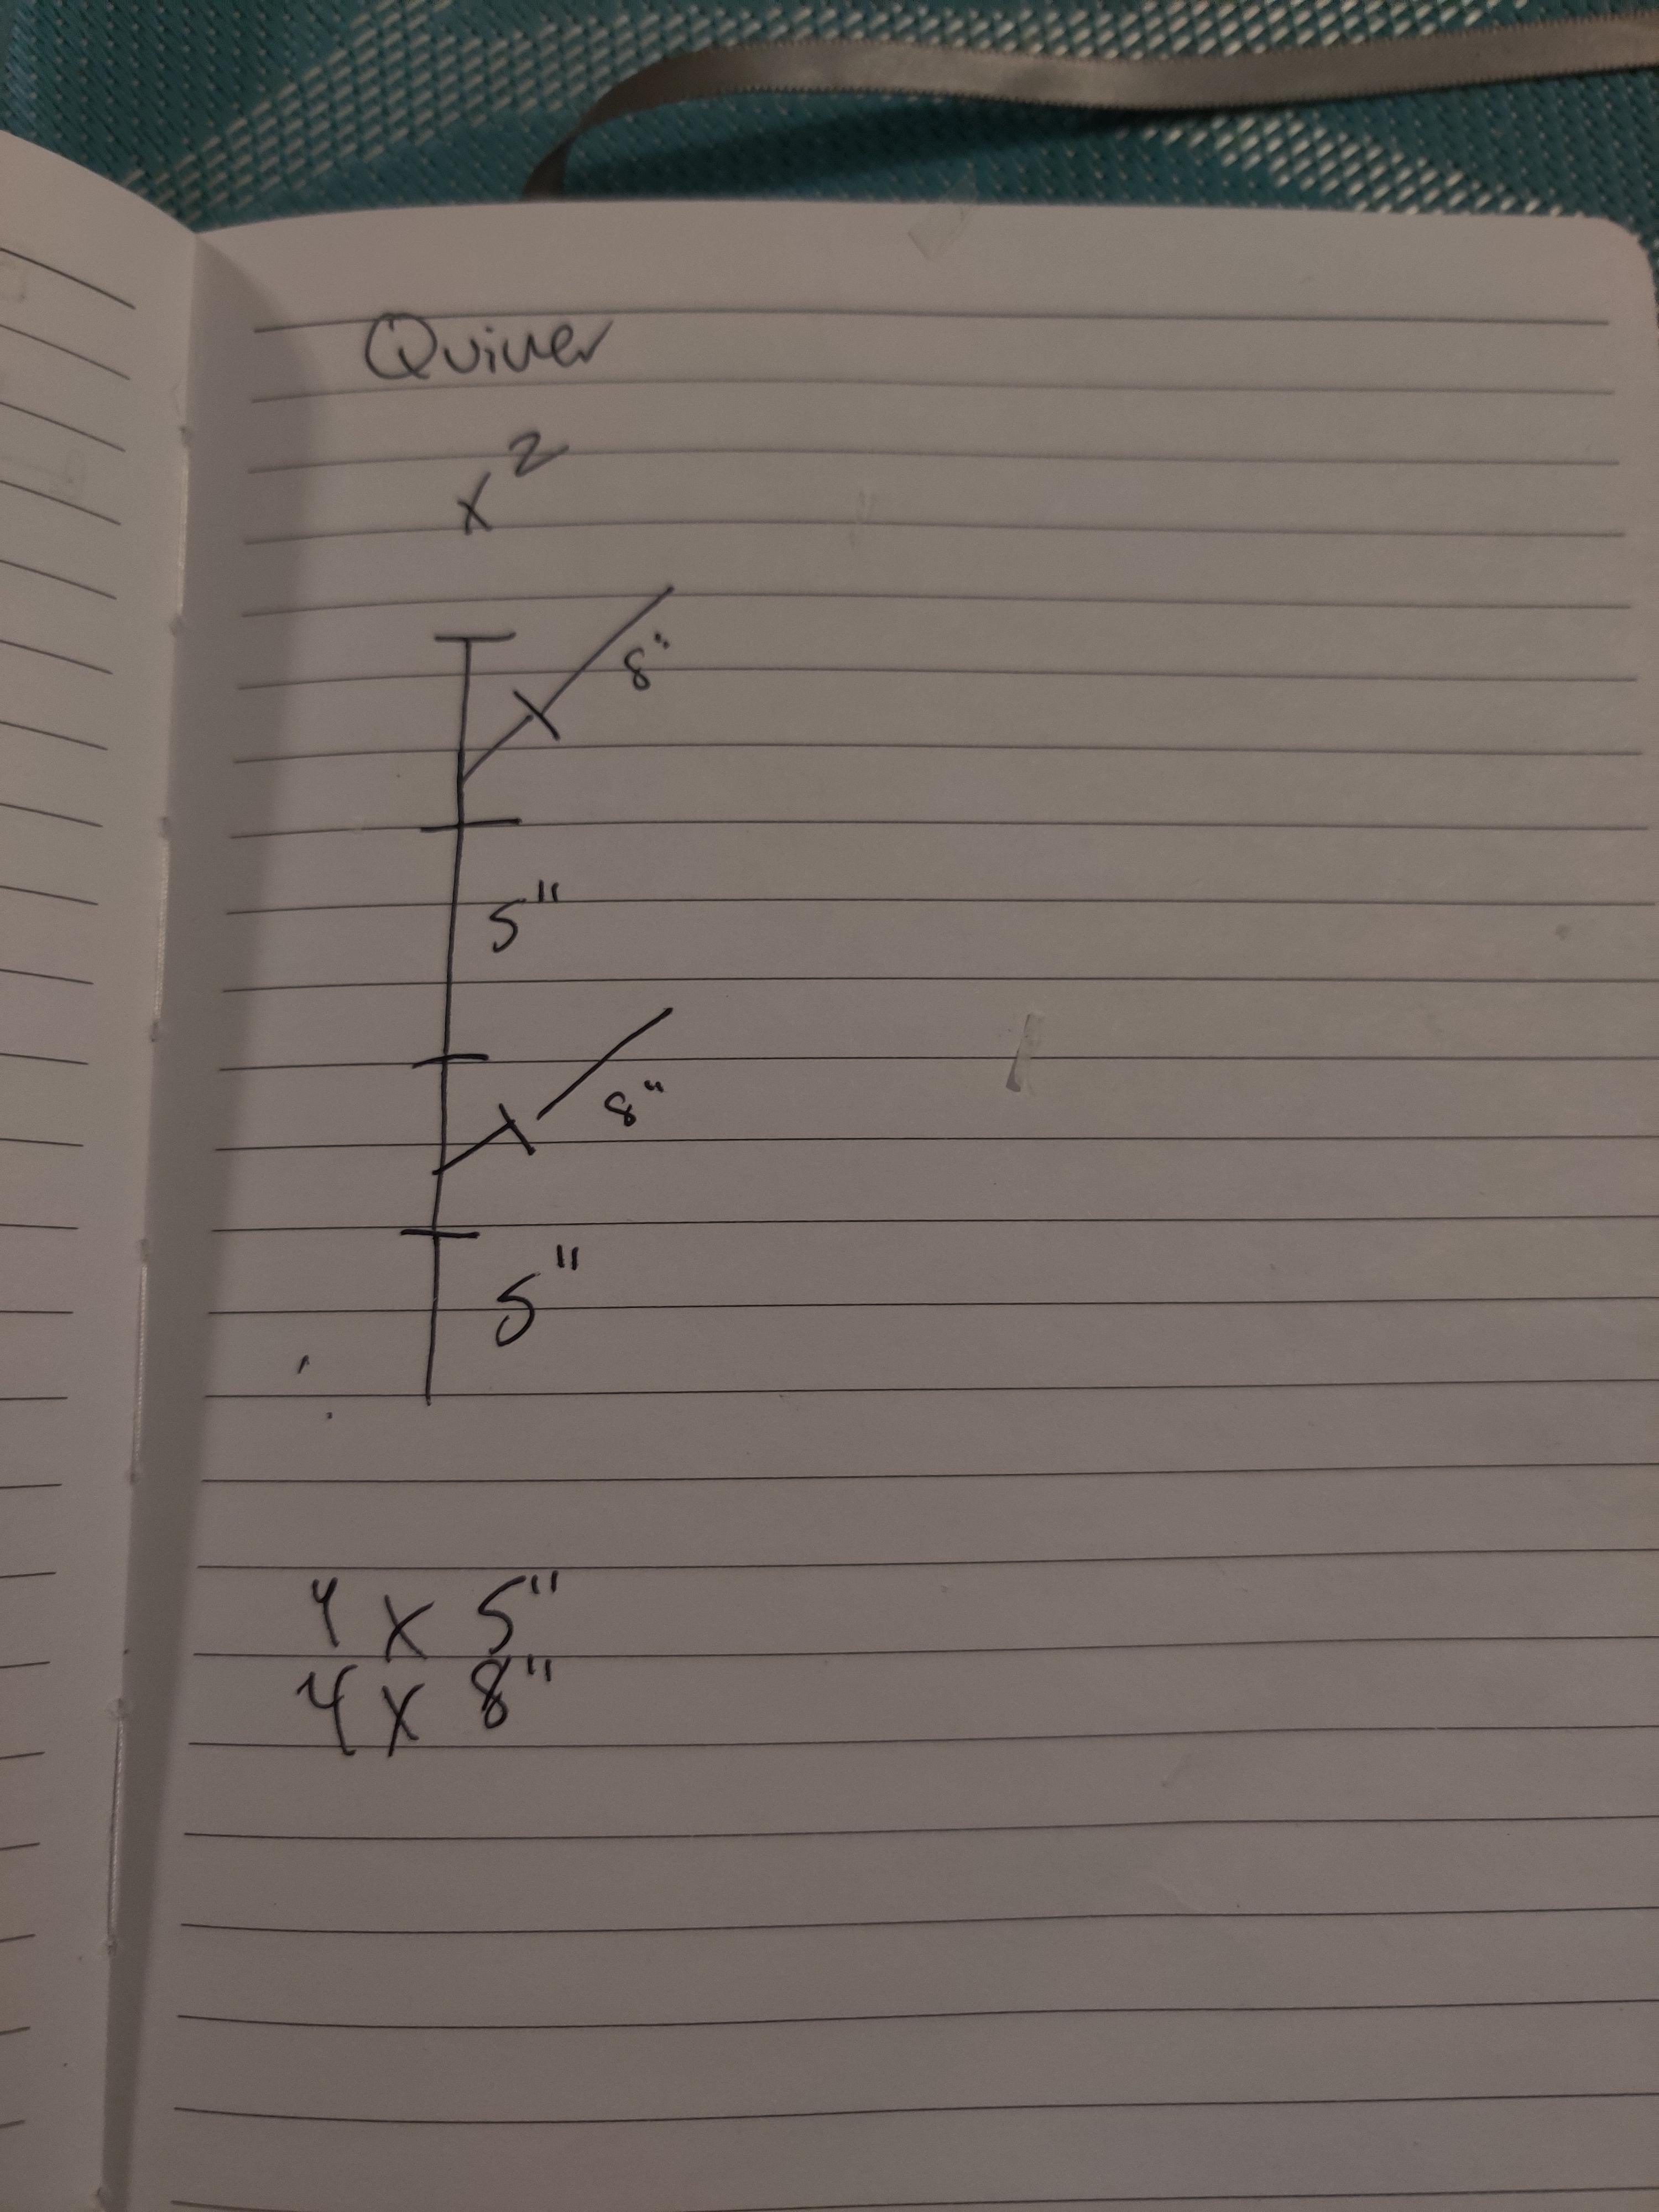 Quiver
x 2
8"
5"
8"
5"
4 x 5"
4 x 8"